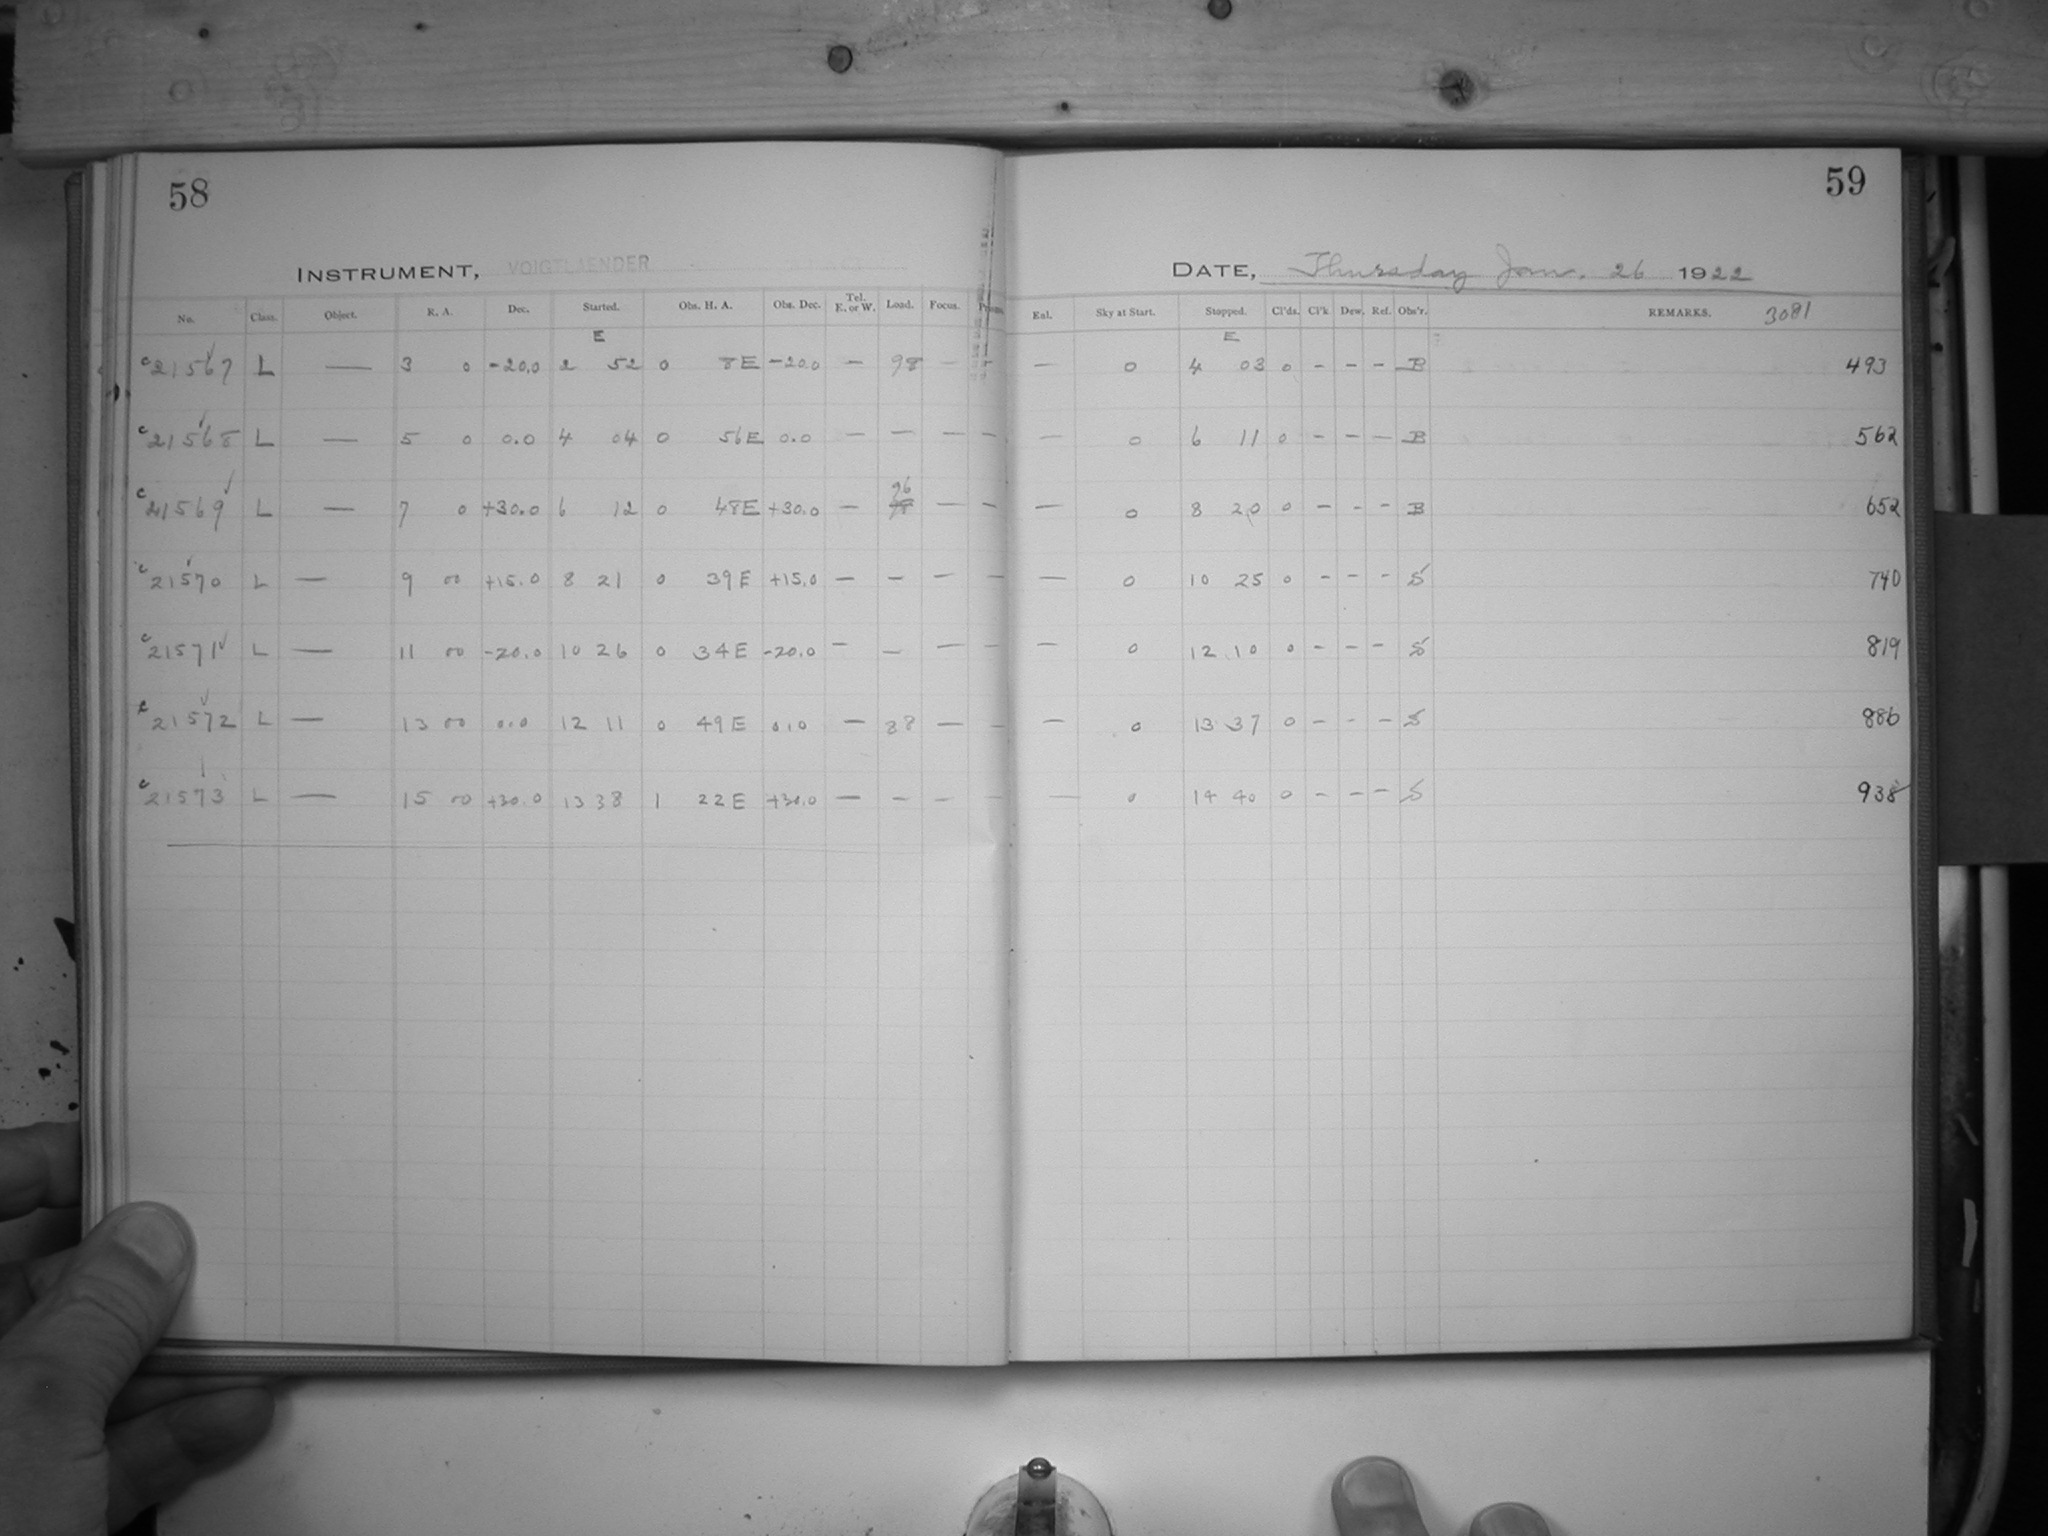 58
INSTRUMENT, VOIGTLAENDER
No. Class. Object. R. A. Dec. Started. Obs. H. A. Obs. Dec. Tel. E. or W. Load. Focus.
E
c21567 L — 3 0 -20.0 2 52 0 8E -20.0 — 98 — —
c21568 L — 5 0 0.0 4 04 0 56E 0.0 — — — —
c21569 L — 7 0 +30.0 6 12 0 48E +30.0 — 96 — —
c21570 L — 9 00 +15.0 8 21 0 39E +15.0 — — — —
c21571 L — 11 00 -20.0 10 26 0 34E -20.0 — — — —
c21572 L — 13 00 0.0 12 11 0 49E 0.0 — 88 — —
c21573 L — 15 00 +30.0 13 38 1 22E +30.0 — — — —
59
DATE, Thursday Jan. 26 1922
Enl. Sky at Start. Stopped. Cl'ds. Cl'k. Dew. Ref. Obs'r. REMARKS. 3081
E
— 0 4 03 0 - - - B 493
— 0 6 11 0 - - - B 562
— 0 8 20 0 - - - B 652
— 0 10 25 0 - - - S 740
— 0 12 10 0 - - - S 819
— 0 13 37 0 - - - S 886
— 0 14 40 0 - - - S 938